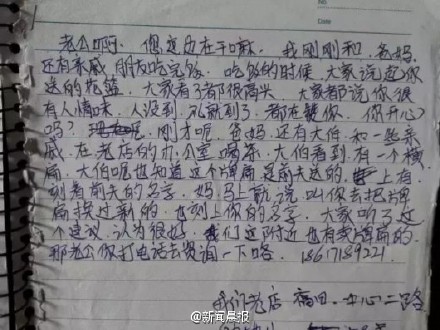 No
Date
老公啊, 您这边在干嘛, 我刚刚和爸妈,
还有亲戚朋友吃完饭. 吃饭的时候, 大家说道你
送的花篮. 大家看了都很高兴, 大家都说你很
有人情味, 人没到, 礼就到了. 都在赞你, 你开心
吗? 呢, 刚才呢, 爸妈, 还有大伯, 和一些亲
戚, 在老店的办公室喝茶, 大伯看到有一个横
扁. 大伯呢也知道这个牌扁是前夫送的, 上有
刻着前夫的名字, 妈马上就说, 叫你去把牌
扁换过新的. 也刻上你的名字. 大家听了这
个建议, 认为很好. 我们这附近也有卖牌扁的.
那老公你打电话去资询一下咯. 18617189221.
我们老店 福田. 中心二路
@新闻晨报